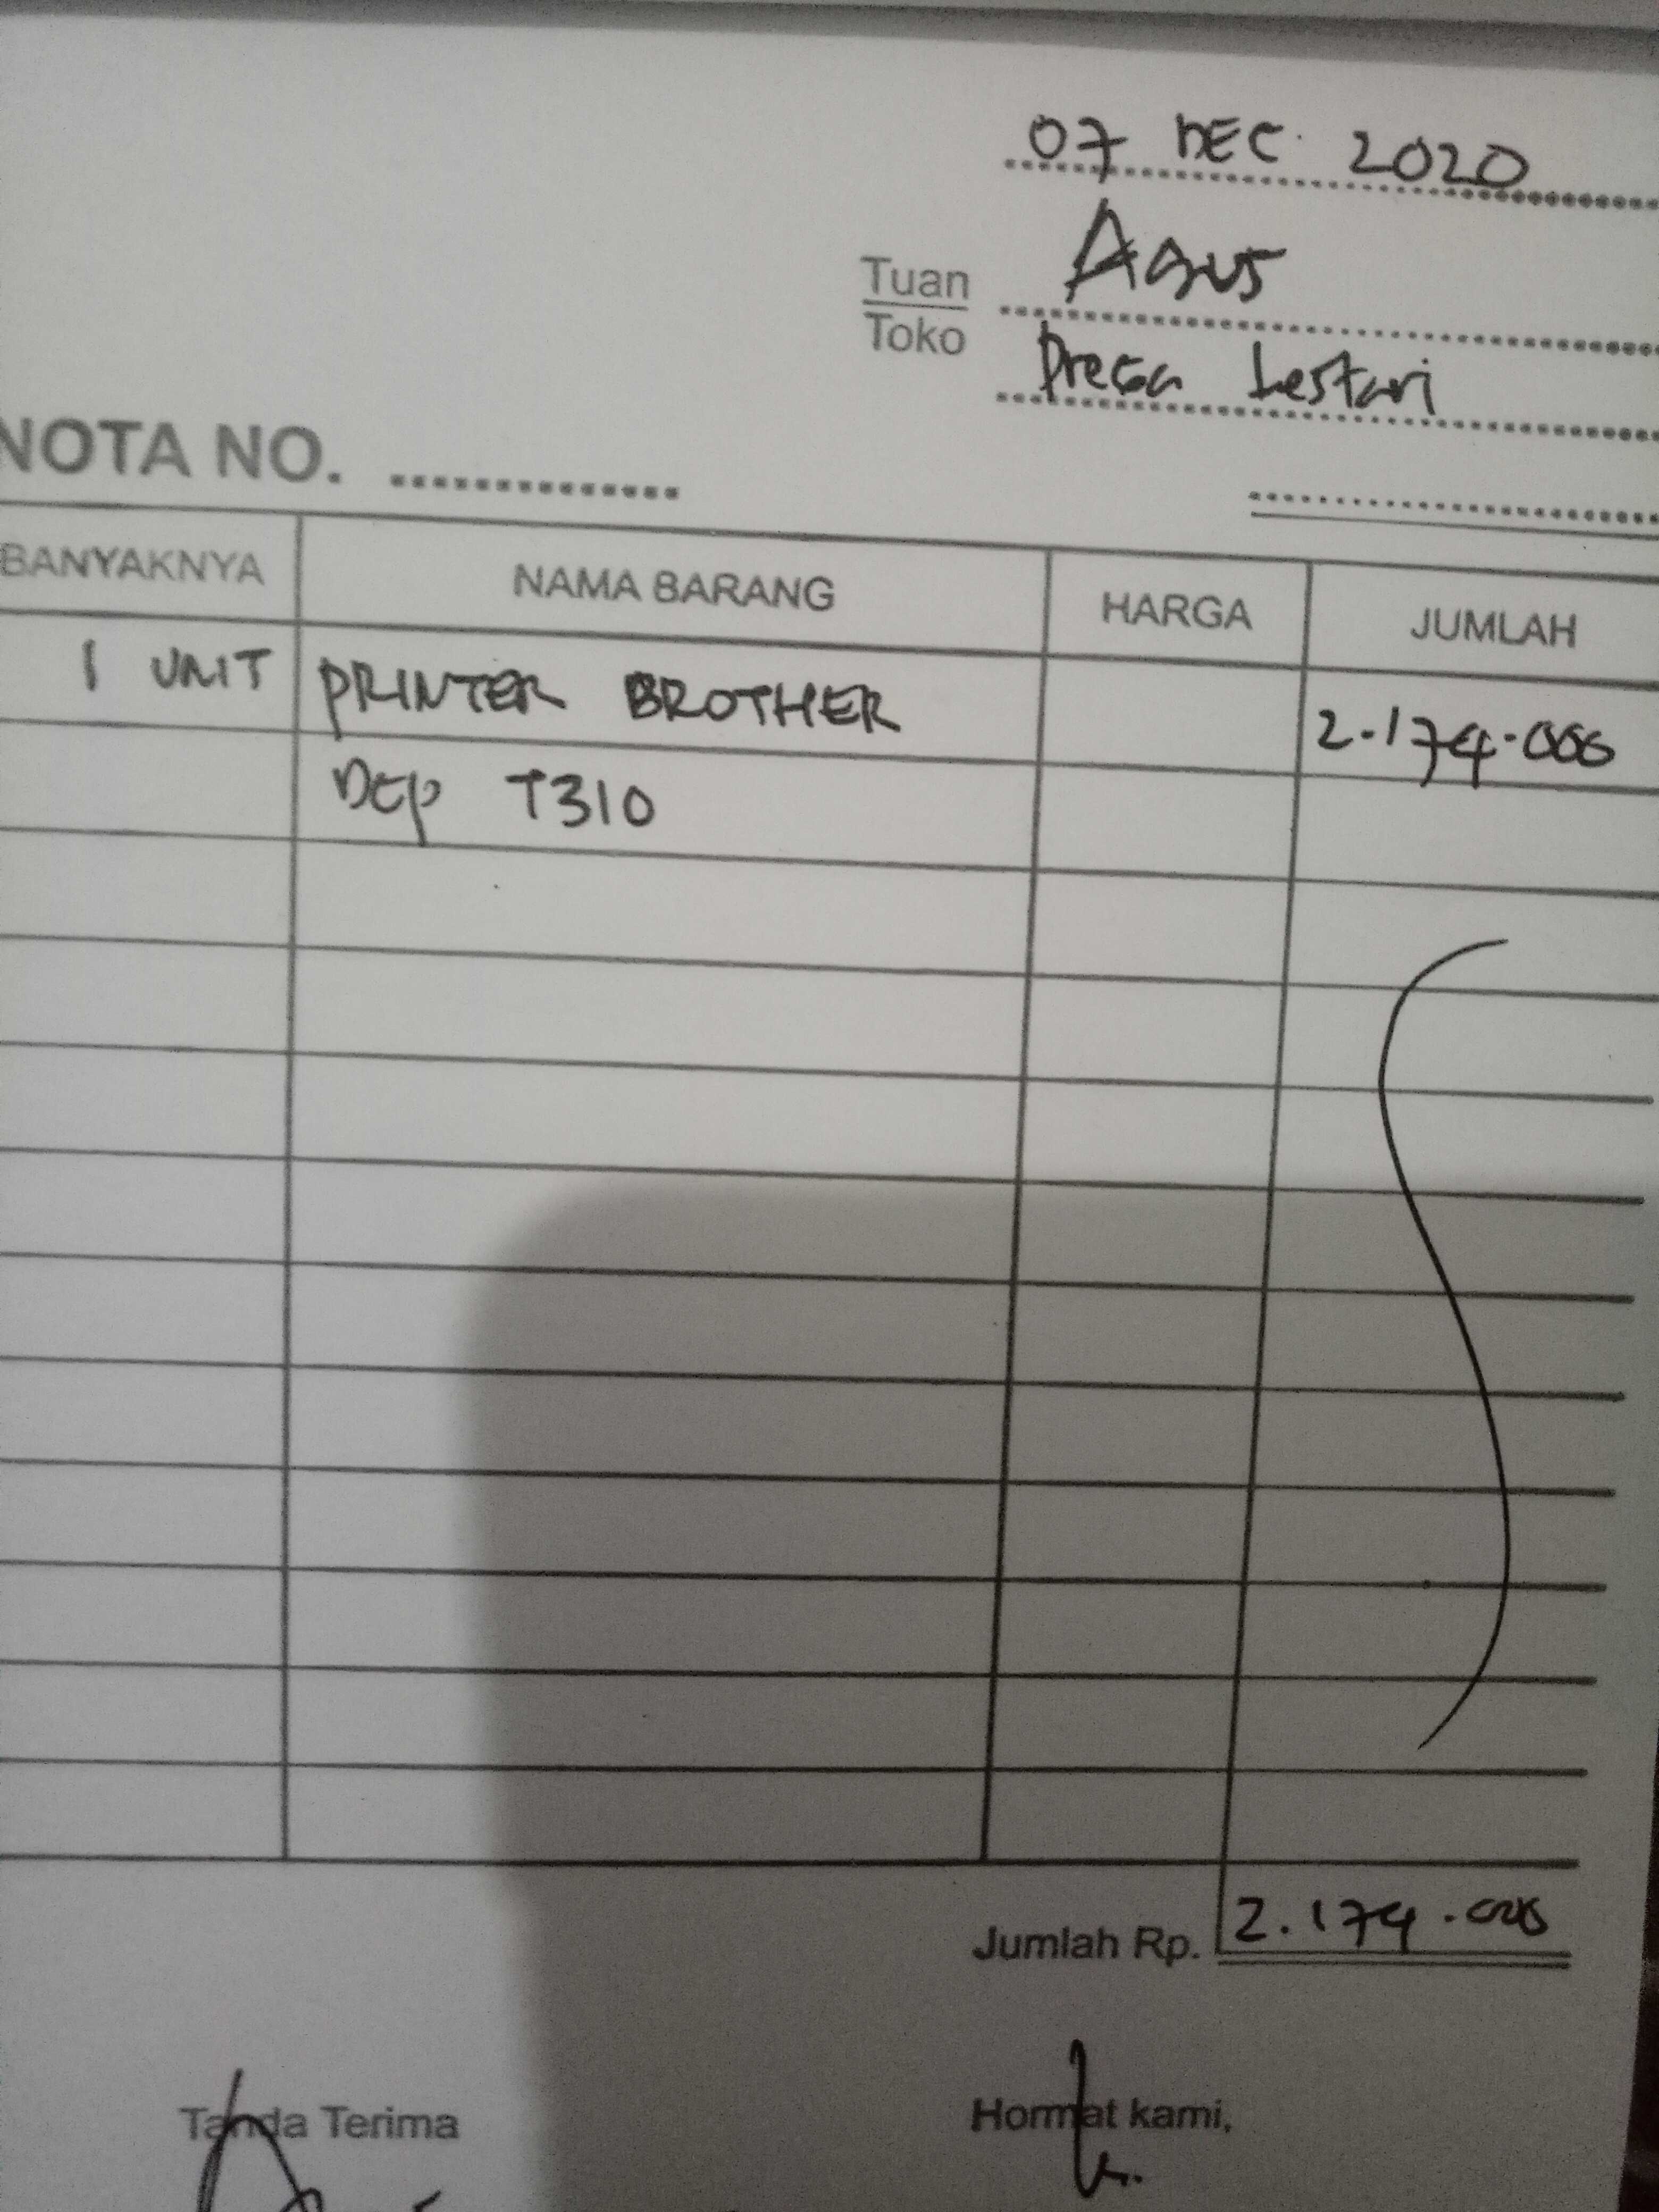 07 DEC. 2020
Tuan Agus
Toko Lestari
NOTA NO.
BANYAKNYA NAMA BARANG HARGA JUMLAH
1 UNIT PRINTER BROTHER 2.174.000
DCP T310
Jumlah Rp. 2.174.000
Tanda Terima Hormat kami,